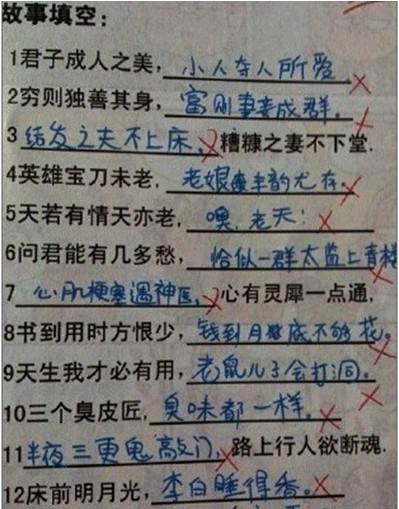 故事填空：
1君子成人之美，小人夺人所爱。
2穷则独善其身，富则妻妾成群。
3结发之夫不上床，糟糠之妻不下堂.
4英雄宝刀未老，老娘丰韵尤存。
5天若有情天亦老，噢，老天！
6问君能有几多愁，恰似一群太监上青楼
7心肌梗塞遇神医，心有灵犀一点通.
8书到用时方恨少，钱到月底不够花。
9天生我才必有用，老鼠儿子会打洞。
10三个臭皮匠，臭味都一样。
11半夜三更鬼敲门，路上行人欲断魂.
12床前明月光，李白睡得香。